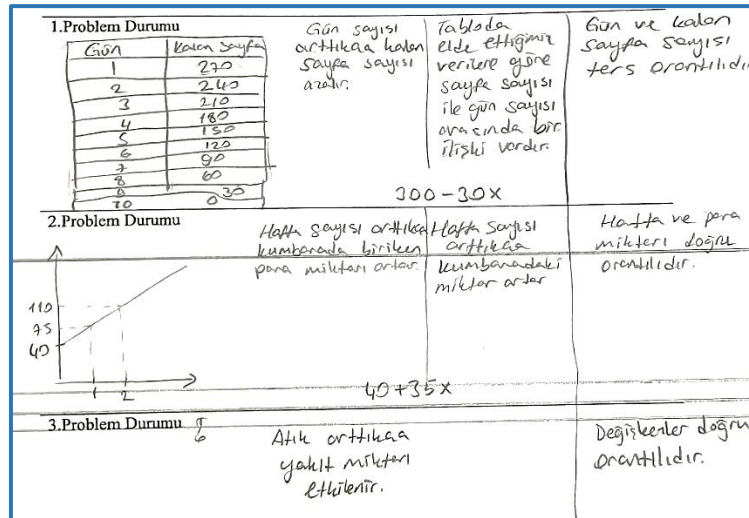 1.Problem Durumu
Gün Kalan Sayfa
1 270
2 240
3 210
4 180
5 150
6 120
7 90
8 60
9 30
10 0
Gün sayısı
arttıkça kalan
sayfa sayısı
azalır.
Tabloda
elde ettiğimiz
verilere göre
sayfa sayısı
ile gün sayısı
arasında bir
ilişki vardır.
Gün ve kalan
sayfa sayısı
ters orantılıdır
300-30x
2.Problem Durumu
110
75
40
1 2
Hafta sayısı arttıkça
kumbarada biriken
para miktarı artar.
Hafta sayısı
arttıkça
kumbaradaki
miktar artar
Hafta ve para
miktarı doğru
orantılıdır.
40+35x
3.Problem Durumu
Atık arttıkça
yakıt miktarı
etkilenir.
Değişkenler doğru
orantılıdır.